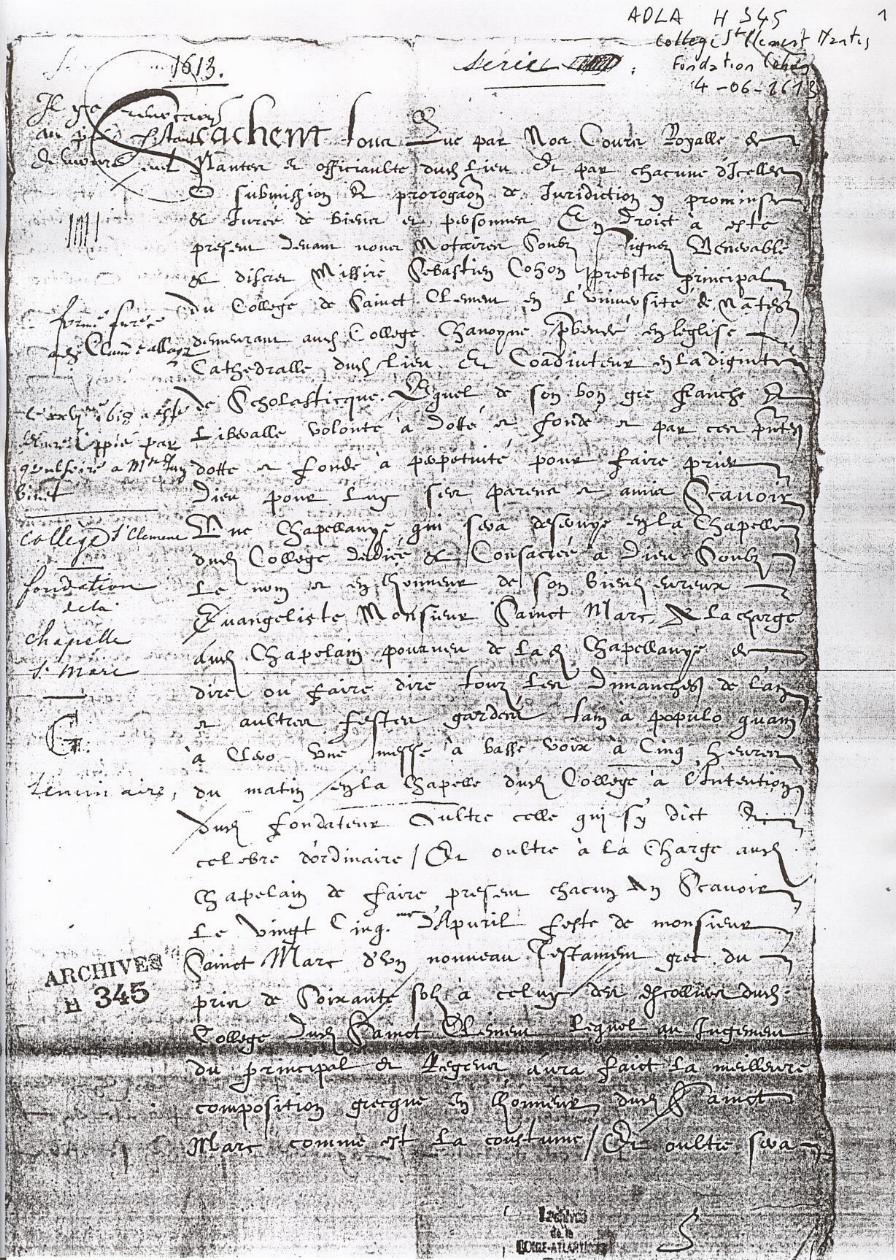 ADLA H 345
1
College St Clement Nantes
Fondation
4-06-1613
1613.
Serie
Il y a
Scachent tous Que par Nos Cours Royalle de
Nantes et officiaulte dud lieu Et par chacune d'Icelles
o submission et prorogaon de Juridiction y promise
et Juree de biens et personnes En droict a este
present devant nous Notaires soubz signez Venerable
et discret Missire Sebastien Cohon prebstre principal
du College de Sainct Clement en l'université de Nantes
demeurant aud College Chanoyne prbendé en leglise
Cathedralle dud lieu et Coadiuteur en la dignite
de Scholasticque. Lequel de son bon gré franche et
Liberalle volonté à dotté et fondé et par ces pntes
dotte et fonde à perpetuité pour faire prier
Dieu pour luy ses parens et amis Scavoir
Une Chapellanye qui sera deservye en la Chapelle
dud College dediée et Consacrée à Dieu Soubz
Le nom et en l'honneur de son bienheureux
Evangeliste Monsieur Sainct Marc A la charge
aud Chapelain pourveu de lad Chapellanye de
dire ou faire dire tous les Dimanches de l'an
et aultres festes gardées tam à populo quam
à Clero une messe à basse voix à Cinq heures
du matin en la Chapelle dud College à l'Intention
dud fondateur Oultre celle qui s'y dict et
celebre d'ordinaire / Et oultre à la Charge aud
Chapelain de faire present chacun an Scavoir
Le vingt Cinq.me d'Apvril feste de monsieur
Sainct Marc d'un nouveau Testament grec du
prix de Soixante solz à celuy des escolliers dud
College dud Sainct Clement Lequel au Jugement
du principal et Regens aura faict la meilleure
composition grecque en l'honneur dud Sainct
Marc comme est la coustume / Et oultre sera
collège St Clement
fondation
de la
chapelle
St Marc
G.
ARCHIVES
H 345
Archives
de la
LOIRE-ATLANTIQUE